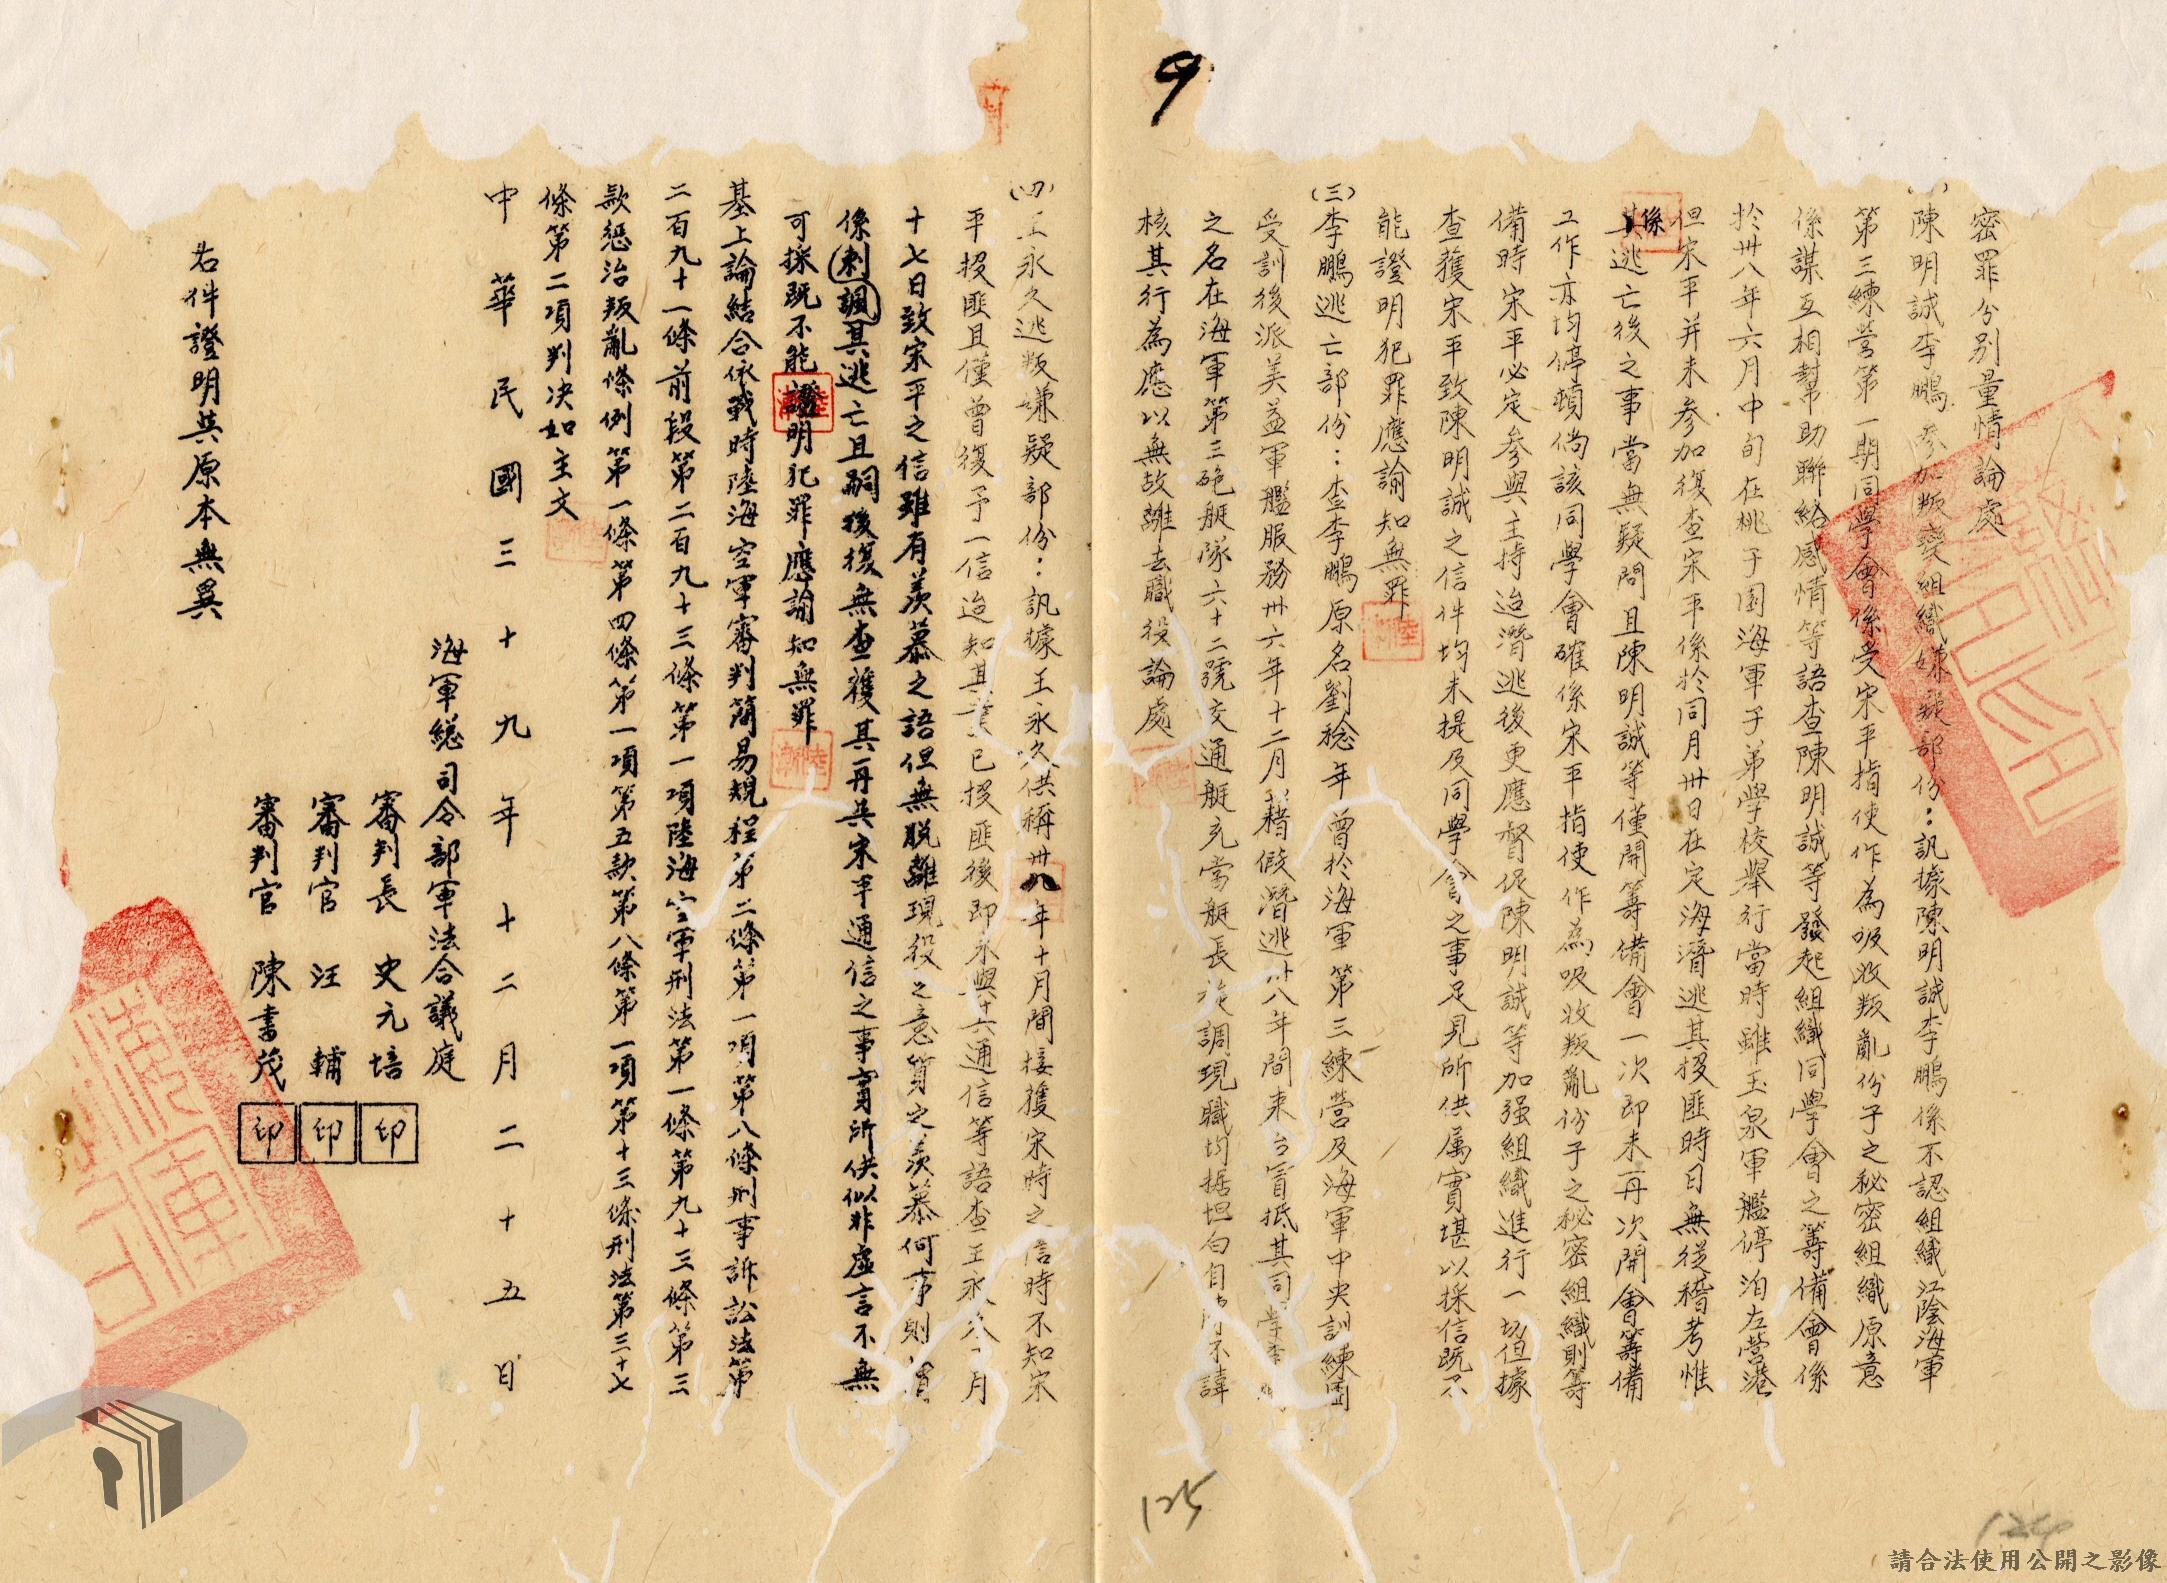 9
密罪份別量情論處
陳明誠李鵬參加叛變組織嫌疑部份：訊據陳明誠李鵬係不認組織江陰海軍
第三練營第一期同學會係受宋平指使作為吸收叛亂份子之秘密組織原意
係謀互相幫助聯絡感情等語查陳明誠等發起組織同學會之籌備會係
於卅八年六月中旬在桃子園海軍子弟學校舉行當時雖玉泉軍艦停泊左營港
但宋平并未參加復查宋平係於同月卅日在定海潛逃其投匪時日無從稽考惟
係其逃亡後之事當無疑問且陳明誠等僅開籌備會一次即未再次開會籌備
工作亦均停頓倘該同學會確係宋平指使作為吸收叛亂份子之秘密組織則籌
備時宋平必定參與主持迨潛逃後更應督促陳明誠等加强組織進行一切但據
查獲宋平致陳明誠之信件均未提及同學會之事足見所供属實堪以採信既不
能證明犯罪應諭知無罪
(三)李鵬逃亡部份：查李鵬原名劉稔年曾於海軍第三練營及海軍中央訓練團
受訓後派美益軍艦服務卅六年十二月藉假潛逃卅八年間來台冒抵其同學李
之名在海軍第三砲艇隊六十二號交通艇充當艇長旋調現職均据坦白自 不諱
核其行為應以無故離去職役論處
(四)王永久逃叛嫌疑部份：訊據王永久供稱卅八年十月間接獲宋時之信時不知宋
平投匪且僅曾復予一信迨知其 已投匪後即未與其通信等語查王永久 月
十七日致宋平之信雖有羡慕之語但無脱離現役之意質之羡慕何事則
係刺諷其逃亡且嗣後復無查獲其再與宋平通信之事實所供似非虛言不無
可採既不能證明犯罪應諭知無罪
基上論結合依戰時陸海空軍審判簡易規程第二條第一項第八條刑事訴訟法第
二百九十一條前段第二百九十三條第一項陸海空軍刑法第一條第九十三條第三
款懲治叛亂條例第一條第四條第一項第五款第八條第一項第十三條刑法第三十七
條第二項判决如主文
中華民國三十九年十二月二十五日
海軍總司令部軍法合議庭
審判長 史元培 印
審判官 汪輔 印
審判官 陳書茂 印
右件證明與原本無異
125
124
請合法使用公開之影像